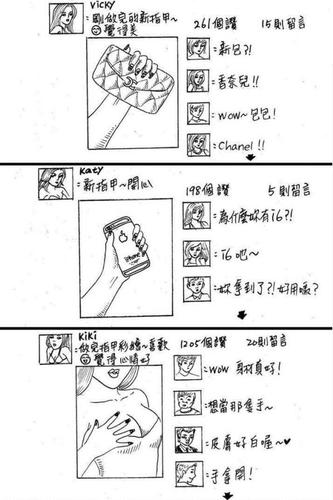 Vicky
：剛做完的新指甲～
覺得美
261個讚
15則留言
：新包?!
：香奈兒!!
：wow～包包!
：Chanel!!
Katy
：新指甲～開心
198個讚
5則留言
：為什麼妳有i6?!
：i6吧～
：妳拿到了?!好用嗎?
iPhone
KiKi
：做完指甲彩繪～喜歡
覺得心情好
1205個讚
20則留言
：wow 身材真好!
：想當那隻手～
：皮膚好白喔～♥
：手拿開!